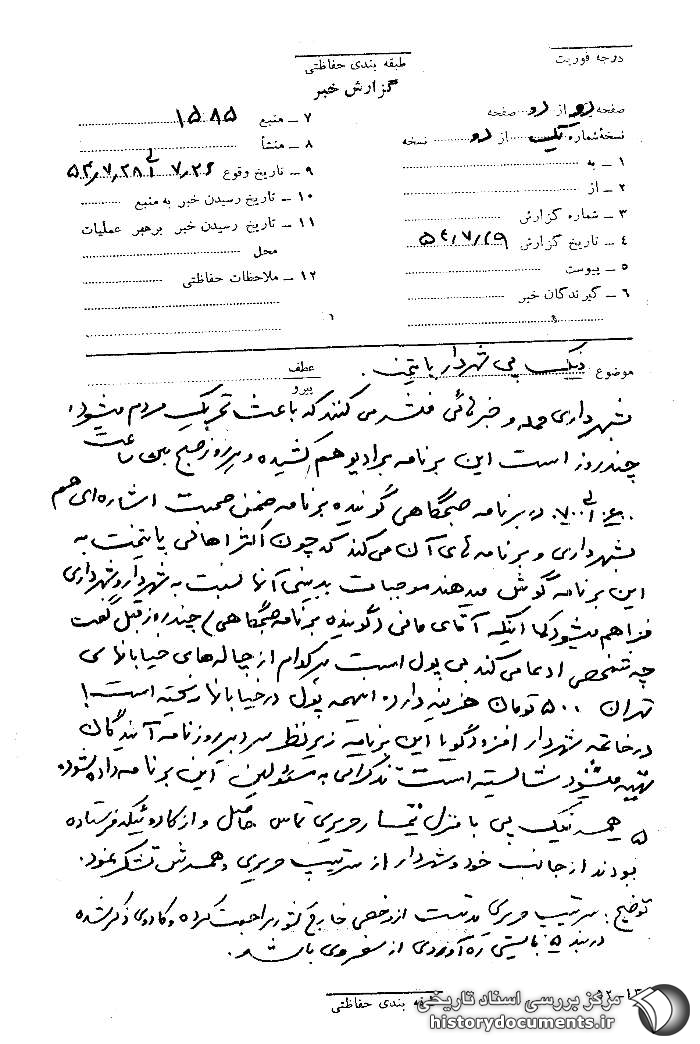 درجه فوریت
طبقه بندی حفاظتی
گزارش خبر
صفحه دو از دو صفحه
نسخهٔ شماره یک از دو نسخه
۱ – به
۲ – از
۳ – شماره گزارش
۴ – تاریخ گزارش ۵۴/۷/۲۹
۵ – پیوست
۶ – گیرندگان خبر
۷ – منبع ۱۵۸۵
۸ – منشأ
۹ – تاریخ وقوع ۷/۲۶ الی ۵۴/۷/۲۸
۱۰ – تاریخ رسیدن خبر به منبع
۱۱ – تاریخ رسیدن خبر برهبر عملیات
محل
۱۲ – ملاحظات حفاظتی
موضوع نیک پی شهردار پایتخت.
عطف
پیرو
بشهرداری حمله و خبرهائی منتشر می کنند که باعث تحریک مردم میشود،
چند روز است این برنامه برادیو هم کشیده و هر روز صبح بین ساعت
الی ۷۰۰ در برنامه صبحگاهی گوینده برنامه ضمن صحبت اشاره ای هم
بشهرداری و برنامه های آن می کند که چون اکثر اهالی پایتخت به
این برنامه گوش میدهند موجبات بدبینی آنها نسبت به شهردار و شهرداری
فراهم میشود کما اینکه آقای مانی (گوینده برنامه صبحگاهی) چند روز قبل گفت
چه شخصی ادعا می کند بی پول است هر کدام از چاله های خیابانهای
تهران ۵۰۰ تومان هزینه دارد اینهمه پول در خیابانها ریخته است!
در خاتمه شهردار افزود گویا این برنامه زیر نظر سردبیر روزنامه آیندگان
تهیه میشود شایسته است تذکراتی به مسئولین این برنامه داده شود.
۵ همسر نیک پی با منزل تیمسار حریری تماس حاصل و از کادوئیکه فرستاده
بودند از جانب خود و شهردار از سرتیپ حریری و همسرش تشکر نمود.
توضیح: سرتیپ حریری مدتیست از مرخصی خارج کشور مراجعت کرده و کادوی ذکر شده
در بند ۵ بایستی ره آوردی از سفر وی باشد.
طبقه بندی حفاظتی
مرکز بررسی اسناد تاریخی
historydocuments.ir